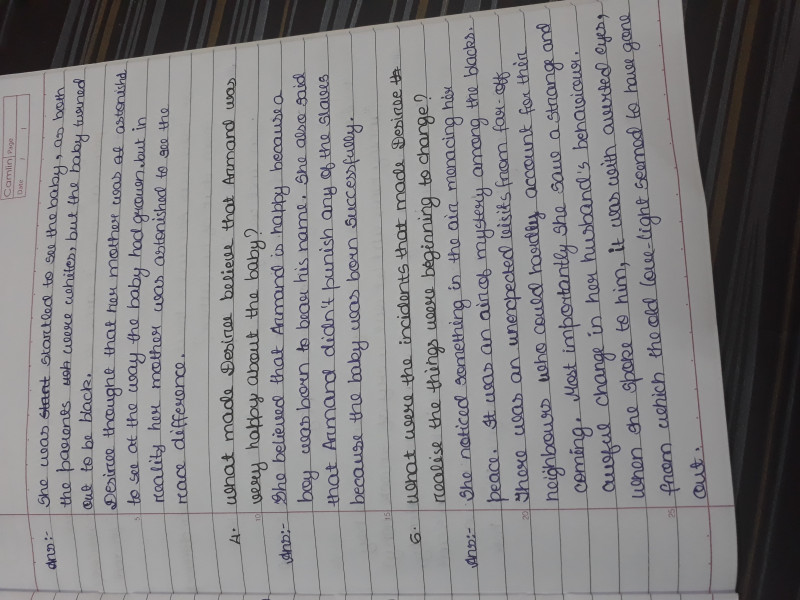 Camlin Page
Date / /
Ans:- She was startled to see the baby, as both
the parents were whites, but the baby turned
out to be black.
Desiree thought that her mother was at astonished
to see at the way the baby had grown. but in
reality her mother was astonished to see the
race difference.
4. what made Desiree believe that Armand was
very happy about the baby?
Ans:- She believed that Armand is happy because a
boy was born to bear his name. She also said
that Armand didn't punish any of the slaves
because the baby was born successfully.
6. what were the incidents that made Desiree
realise the things were beginning to change?
Ans:- She noticed something in the air menacing her
peace. It was an air of mystery among the blacks.
There was an unexpected visits from far-off
neighbours who could hardly account for their
coming. Most importantly she saw a strange and
awful change in her husband's behaviour.
When she spoke to him, it was with averted eyes,
from which the old love-light seemed to have gone
out.
5
10
15
20
25